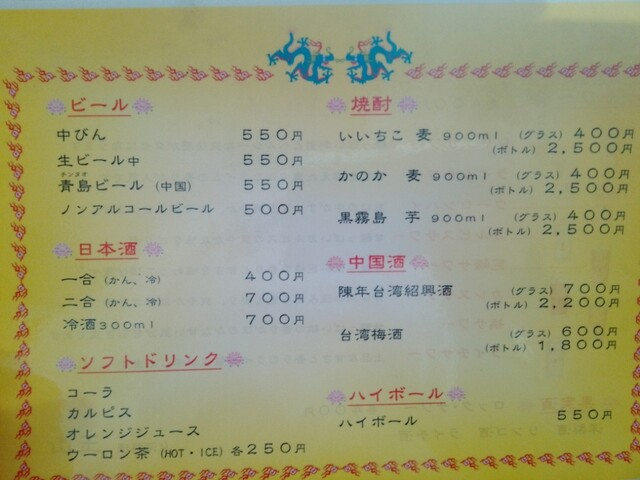 ビール
中びん 550円
生ビール中 550円
チンタオ
青島ビール (中国) 550円
ノンアルコールビール 500円
日本酒
一合 (かん、冷) 400円
二合 (かん、冷) 700円
冷酒300ml 700円
ソフトドリンク
コーラ
カルピス
オレンジジュース
ウーロン茶 (HOT・ICE) 各250円
焼酎
いいちこ 麦 900ml (グラス) 400円
(ボトル) 2,500円
かのか 麦 900ml (グラス) 400円
(ボトル) 2,500円
黒霧島 芋 900ml (グラス) 400円
(ボトル) 2,500円
中国酒
陳年台湾紹興酒 (グラス) 700円
(ボトル) 2,200円
台湾梅酒 (グラス) 600円
(ボトル) 1,800円
ハイボール
ハイボール 550円